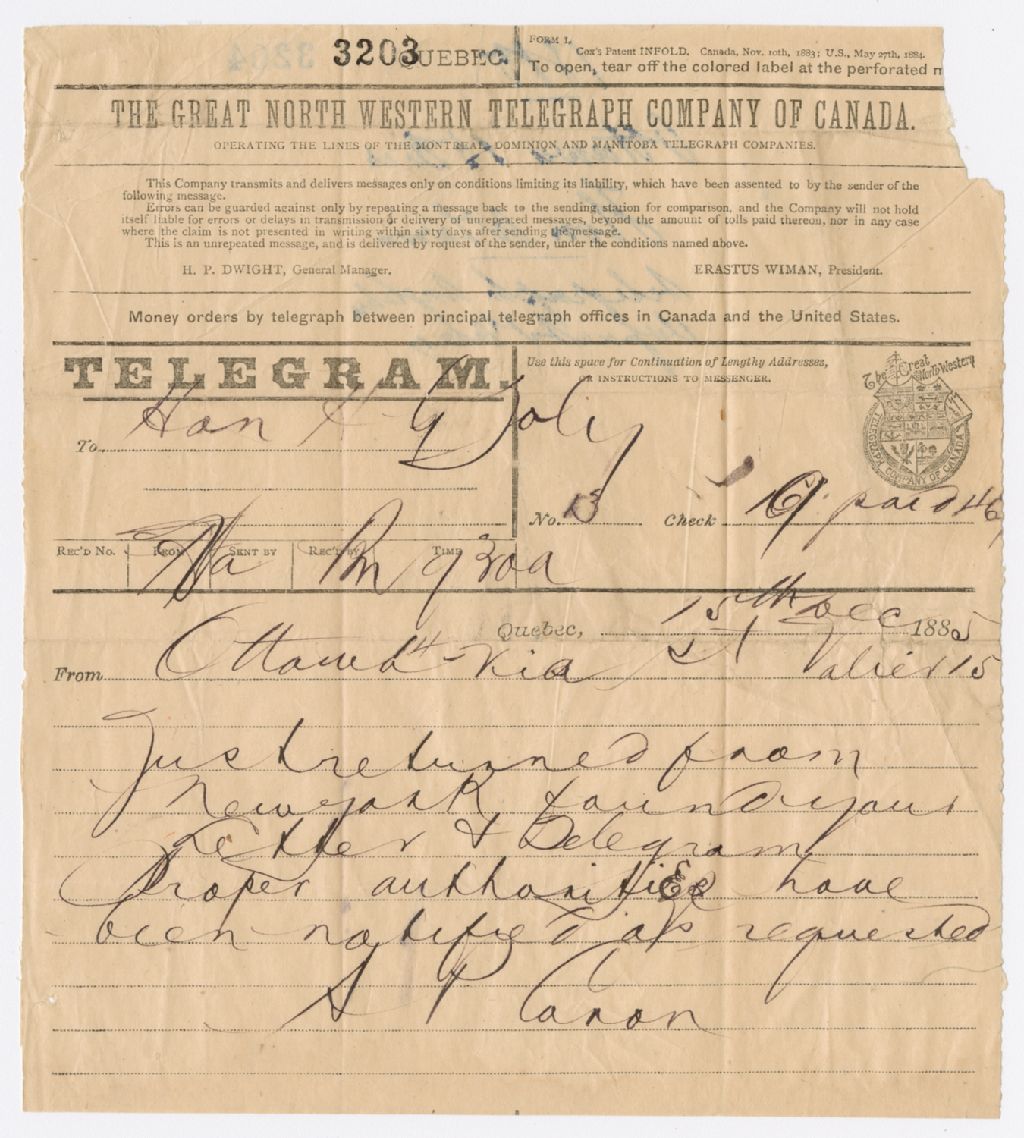 3203
QUEBEC.
FORM 1.
Cox's Patent INFOLD. Canada, Nov. 10th, 1883; U.S., May 27th, 1884.
To open, tear off the colored label at the perforated
THE GREAT NORTH WESTERN TELEGRAPH COMPANY OF CANADA.
OPERATING THE LINES OF THE MONTREAL, DOMINION AND MANITOBA TELEGRAPH COMPANIES.
This Company transmits and delivers messages only on conditions limiting its liability, which have been assented to by the sender of the
following message.
Errors can be guarded against only by repeating a message back to the sending station for comparison, and the Company will not hold
itself liable for errors or delays in transmission or delivery of unrepeated messages, beyond the amount of tolls paid thereon, nor in any case
where the claim is not presented in writing within sixty days after sending the message.
This is an unrepeated message, and is delivered by request of the sender, under the conditions named above.
H. P. DWIGHT, General Manager. ERASTUS WIMAN, President.
Money orders by telegraph between principal telegraph offices in Canada and the United States.
TELEGRAM.
Use this space for Continuation of Lengthy Addresses,
OR INSTRUCTIONS TO MESSENGER.
The Great North Western
TELEGRAPH COMPANY OF CANADA
To Hon H G Joly
No. 13 Check 19 paid 46
REC'D No. FROM SENT BY REC'D BY TIME
Na Pm 930a
Quebec, 15th Dec 1885
From Ottawa 14 - via St Valier 15
Just returned from
Newyork found your
Letter & Telegram
Proper authorities have
been notified as requested
A P Caron